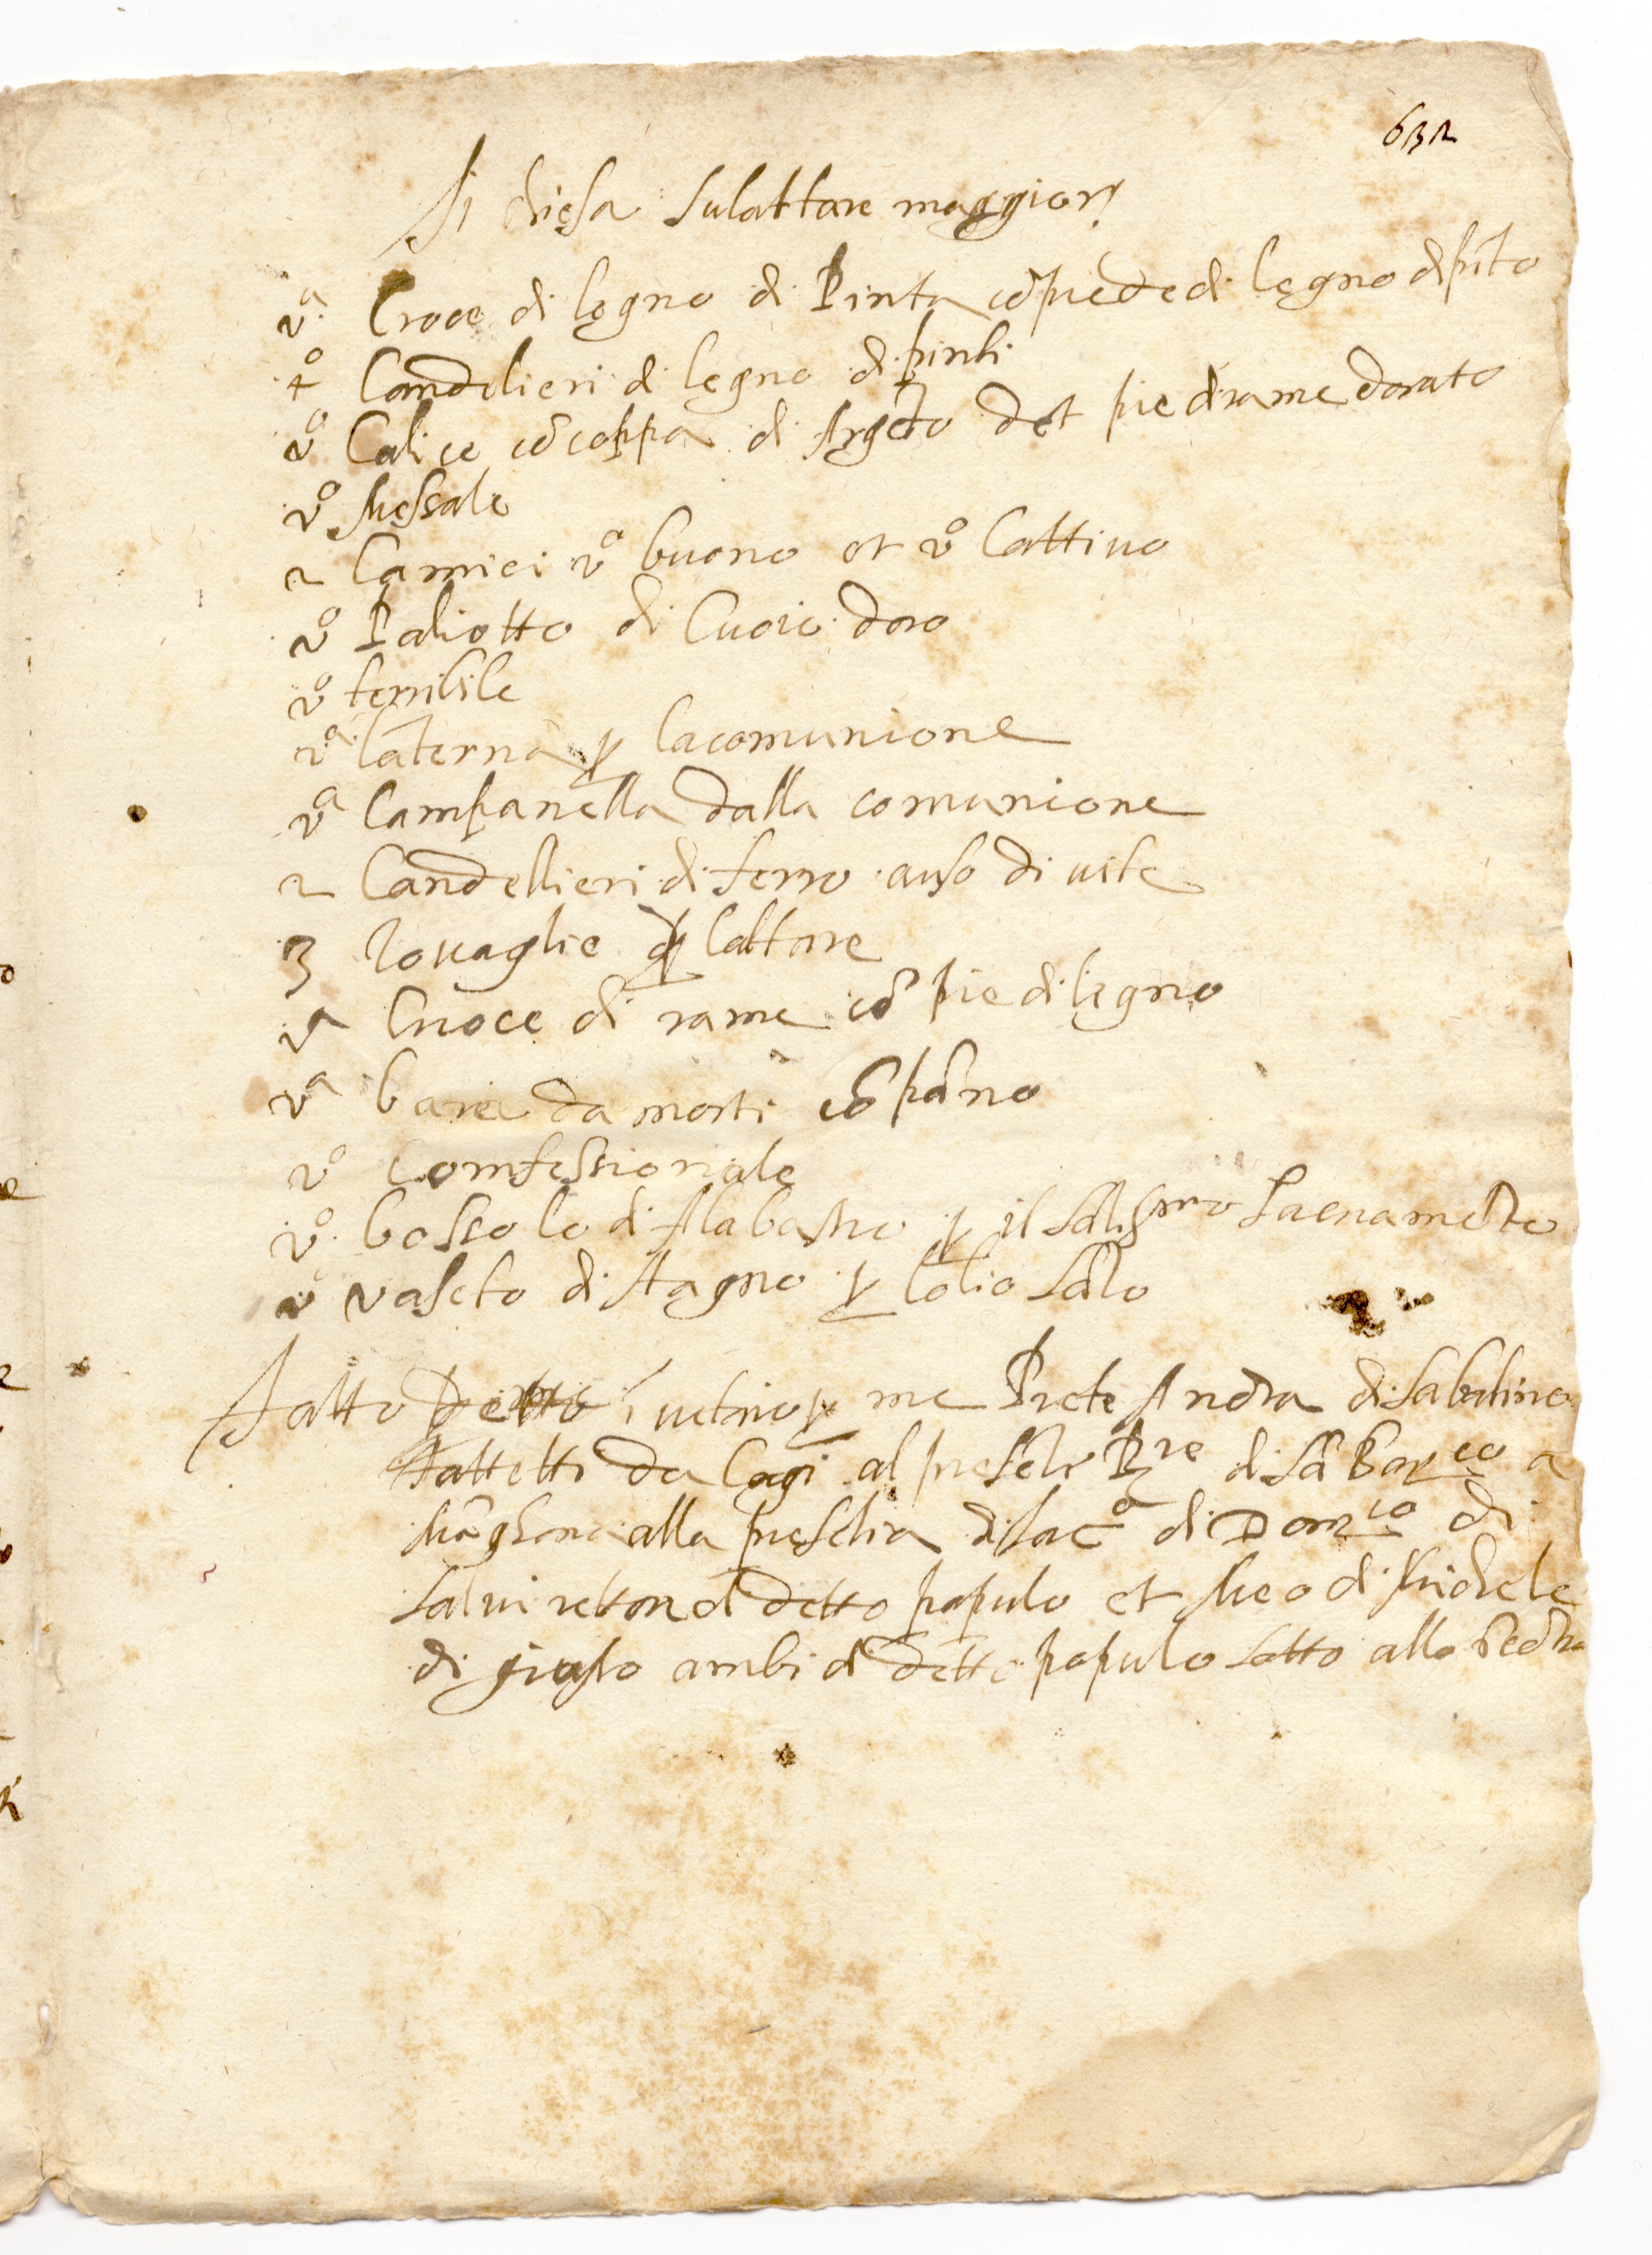 632
Ī chiesa sulattare maggiore
va Croce di legno di Pinta cō piede di legno dipīto
4o Candelieri di legno di pinti
vo Calice cō coppa di Argēto Det pie di rame dorato
vo Messale
2 Camici vo buono et vo Cattivo
vo Paliotto di Cuoio doro
vo terribile
va lāterna p lacomunione
va Campanella dalla comunione
2 Candellieri di ferro auso di uite
3 Tovaglie p laltare
va Croce di rame cō pie di legno
va bara da morti cō pāno
vo Comfessionale
vo bossolo di Alabastro p il Sātissmo Sacramēto
vo vaseto di stagno p lolio Sāto
Fatto Detto īuētario p me Prete Andrea di Sabatino
Fattetti da Cagi al presēte Rre di Sā Barco a
alla presētia di Iaco di Domco di
Salvi rettore di detto populo et Meo di Michele
di giusto ambi di detto populo Sotto allo